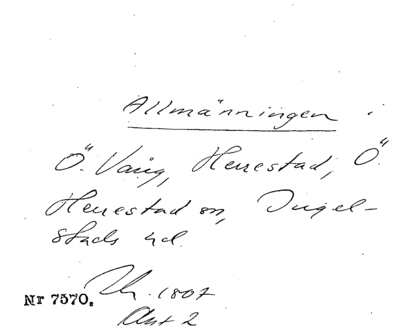 Allmänningen
Ö. Vång, Herrestad, Ö.
Herrestad sn, Ingel-
stads hd.
1807
Nr 7570.
Akt 2